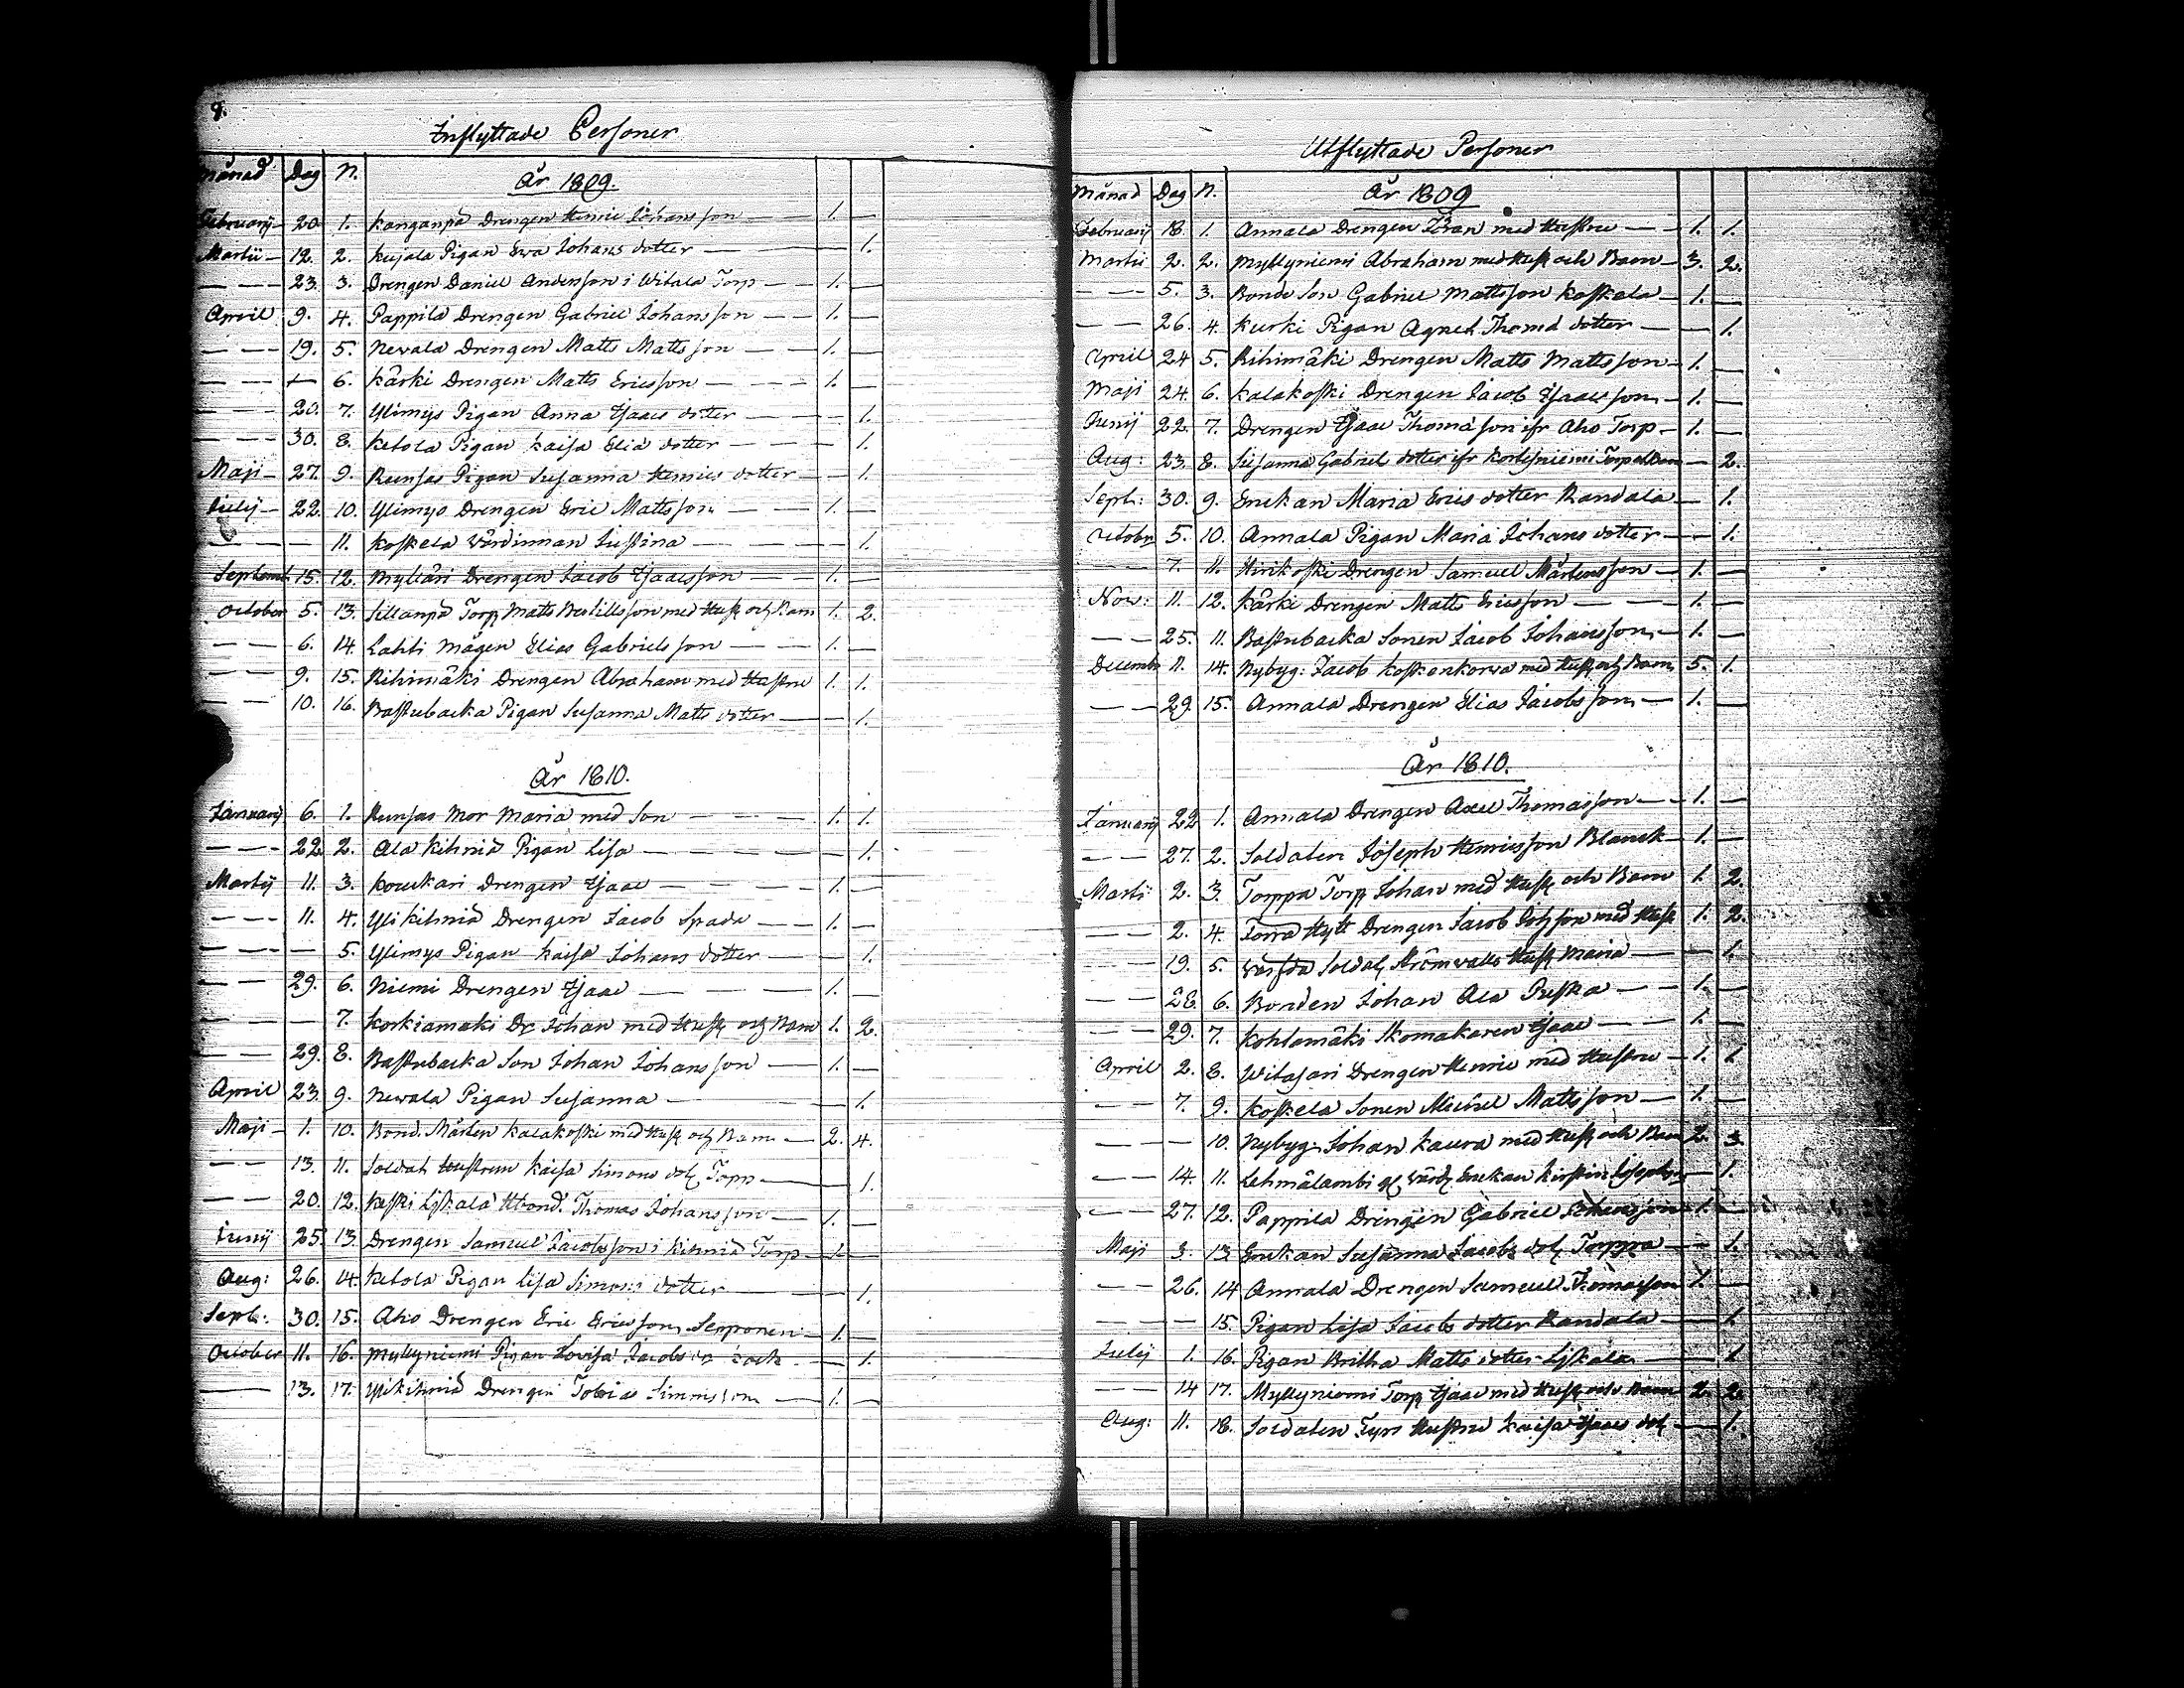 9.
Inflyttade Personer
Månad Dag N. År 1809.
Februarij 20. 1. Kanganpä Drengen Henric Johansson 1. —
Martii 12. 2. Kujala Pigan Ewa Johans dotter — 1.
— 23. 3. Drengen Daniel Andersson i Witala Torp 1. —
April 9. 4. Pappila Drengen Gabriel Johansson 1. —
— 19. 5. Nevala Drengen Matts Mattsson 1. —
— — 6. Kärki Drengen Matts Ericsson 1. —
— 20. 7. Ylimys Pigan Anna Isaacs dotter — 1.
— 30. 8. Ketola Pigan Kaisa Eliæ dotter — 1.
Maji 27. 9. Runsas Pigan Susanna Henrics dotter — 1.
Julij 22. 10. Ylimys Drengen Eric Mattsson 1. —
— — 11. Koskela Värdinnan Justina — 1.
Septemb. 15. 12. Mylläri Drengen Jacob Isaacsson 1. —
October 5. 13. Sillanpä Torp. Matts Bertillsson med Hust. och Barn 1. 2.
— 6. 14. Lahti mågen Elias Gabrielsson 1. —
— 9. 15. Rihimäki Drengen Abraham med Hustru 1. 1.
— 10. 16. Bastubacka Pigan Susanna Matts dotter — 1.
År 1810.
Januarij 6. 1. Runsas Mor Maria med Son 1. 1.
— 22. 2. Ala Kihniä Pigan Lisa — 1.
Martij 11. 3. Kouckari Drengen Isaac 1. —
— 11. 4. Yli Kihniä Drengen Jacob Spade 1. —
— — 5. Ylimys Pigan Kaisa Johans dotter — 1.
— 29. 6. Niemi Drengen Isaac 1. —
— — 7. Korkiamaki Dr. Johan med Hust. och Barn 1. 2.
— 29. 8. Bastubacka Son Johan Johansson 1. —
April 23. 9. Nevala Pigan Susanna — 1.
Maji 1. 10. Bond. Mårten Kalakoski med Hust. och Barn 2. 4.
— 13. 11. Soldat Hustrun Kaisa Simons dot. — 1.
— 20. 12. Keski Thomas Johansson 1. —
Junij 25. 13. Drengen Samuel Jacobsson i Kihniä Torp 1. —
Aug: 26. 14. Ketola Pigan Lisa Simons dotter — 1.
Sept: 30. 15. Aho Drengen Eric Ericsson Serponen 1. —
October 11. 16. Myllyniemi Pigan Lovisa Jacobs — 1.
— 13. 17. Ylikihniä Drengen Tobias Simonsson 1. —
Utflyttade Personer
Månad Dag N. År 1809
Februarij 18. 1. Annala Drengen Göran med Hustru 1. 1.
Martii 2. 2. Myllyniemi Abraham med Hust. och Barn 3. 2.
— 5. 3. Bonde Son Gabriel Mattsson Koskela 1. —
— 26. 4. Kurki Pigan Agnes Thomæ dotter — 1.
April 24 5. Rihimäki Drengen Matts Mattsson 1. —
Maji 24. 6. Kalakoski Drengen Jacob Isaacsson 1. —
Junij 22. 7. Drengen Isaac Thomæson ifr Aho Torp 1. —
Aug: 23. 8. Susanna Gabriel dotter ifr Kortesniemi Torp — 2.
Sept: 30. 9. Enckan Maria Erics dotter Randala — 1.
October 5. 10. Annala Pigan Maria Johans dotter — 1.
— 7. 11. Hirikoski Drengen Samuel Mårtensson 1. —
Nov: 11. 12. Kärki Drengen Matts Ericsson 1. —
— 25. 11. Bastubacka Sonen Jacob Johansson 1. —
Decemb. 11. 14. Nybyg: Jacob Koskenkorva med Hust. och Barn 5. 1.
— 29 15. Annala Drengen Elias Jacobsson 1. —
År 1810.
Januarij 22 1. Annala Drengen Axel Thomasson 1. —
— 27. 2. Soldaten Joseph Henricsson Blanck 1. —
Marti 2. 3. Torppa Torp. Johan med Hust. och Barn 1. 2.
— 2. 4. Drengen Jacob med Hust. 1. 2.
— 19. 5. Soldat. Strömvalls Hust. Maria — 1.
— 28. 6. Bonden Johan Ala Puska 1. —
— 29. 7. Kohlamäki Skomakaren Isaac 1. —
April 2. 8. Witasari Drengen Henric med Hustru 1. 1.
— 7. 9. Koskela Sonen Michel Mattsson 1. —
— — 10. Nybyg: Johan Kaura med Hust. och Barn 2. 3.
— 14. 11. Lehmälambi Enckan Kirstin Josephs — 1.
— 27. 12. Pappila Drengen Gabriel Johansson 1. —
Maji 3. 13. Enckan Susanna Jacobs dot. Torppa — 1.
— 26. 14 Annala Drengen Samuel Thomasson 1. —
— — 15. Pigan Lisa Jacobs dotter Randala — 1.
Julij 1. 16. Pigan Britha Matts dotter — 1.
— 14 17. Myllyniemi Torp. Isaac med Hust. och Barn 2. 2.
Aug: 11. 18. Soldaten Fyrs Hustru Kaisa Isaacs dot. — 1.